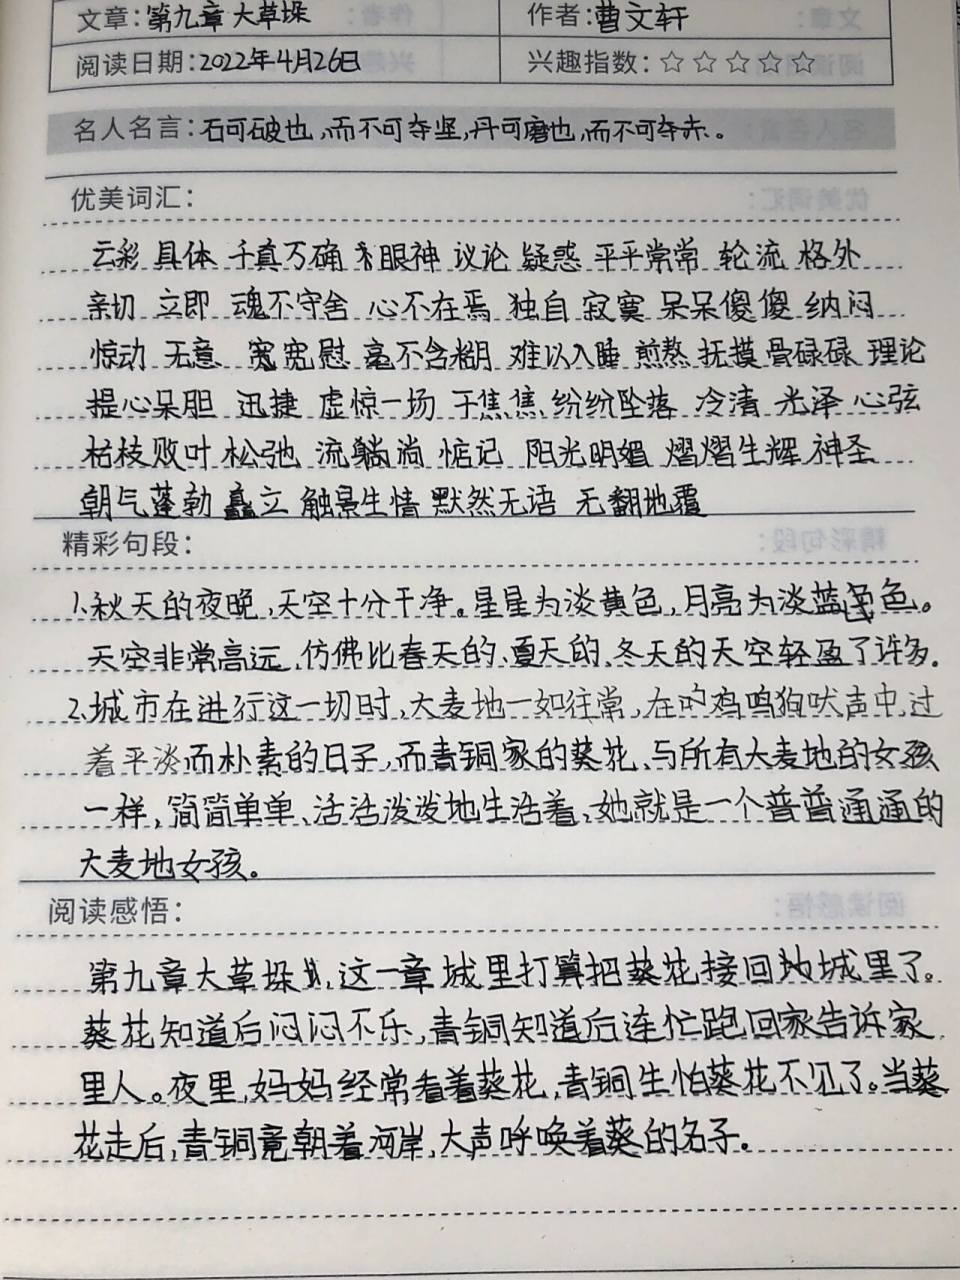 文章：第九章 大草垛 作者：曹文轩
阅读日期：2022年4月26日 兴趣指数：☆☆☆☆☆
名人名言：石可破也，而不可夺坚，丹可磨也，而不可夺赤。
优美词汇：
云彩 具体 千真万确 眼神 议论 疑惑 平平常常 轮流 格外
亲切 立即 魂不守舍 心不在焉 独自 寂寞 呆呆傻傻 纳闷
惊动 无意 宽慰 毫不含糊 难以入睡 煎熬 抚摸 骨碌碌 理论
提心呆胆 迅捷 虚惊一场 干焦焦 纷纷坠落 冷清 光泽 心弦
枯枝败叶 松弛 流淌 惦记 阳光明媚 熠熠生辉 神圣
朝气蓬勃 矗立 触景生情 默然无语 无翻地覆
精彩句段：
1.秋天的夜晚，天空十分干净。星星为淡黄色，月亮为淡蓝色。
天空非常高远、仿佛比春天的、夏天的、冬天的天空轻盈了许多.
2.城市在进行这一切时，大麦地一如往常，在鸡鸣狗吠声中，过
着平淡而朴素的日子，而青铜家的葵花、与所有大麦地的女孩
一样，简简单单、活活泼泼地生活着，她就是一个普普通通的
大麦地女孩。
阅读感悟：
第九章大草垛，这一章城里打算把葵花接回城里了。
葵花知道后闷闷不乐，青铜知道后连忙跑回家告诉家
里人。夜里，妈妈经常看着葵花，青铜生怕葵花不见了。当葵
花走后，青铜竟朝着河岸，大声呼唤着葵的名子。